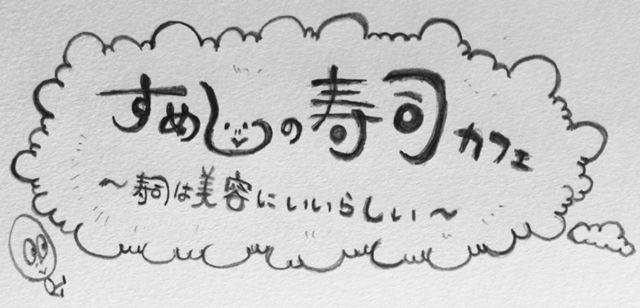 すめしの寿司カフェ
～寿司は美容にいいらしい～